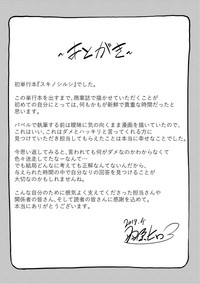 ～あとがき～
初単行本『スキノシルシ』でした。
この単行本を出すまで、商業誌で描かせていただくことが
初めての自分にとっては、何もかもが新鮮で貴重な時間だったと
思います。
バベルで執筆する前は曖昧に気の向くまま漫画を描いていたので、
これはいい、これはダメとハッキリと言ってくれる方に
見つけていただき担当してもらえたことは本当に幸せなことでした。
今思い返してみると、言われても何がダメなのかわからなくて
色々迷走してたな〜なんて…
でも結局どんなに考えても正解なんてないんだから、
与えられた時間の中で自分なりの回答を見つけることが
大切なのかもしれませんね。
こんな自分のために根気よく支えてくださった担当さんや
関係者の皆さん、そして読者の皆さんに感謝を込めて。
本当にありがとうございます。
2019.4